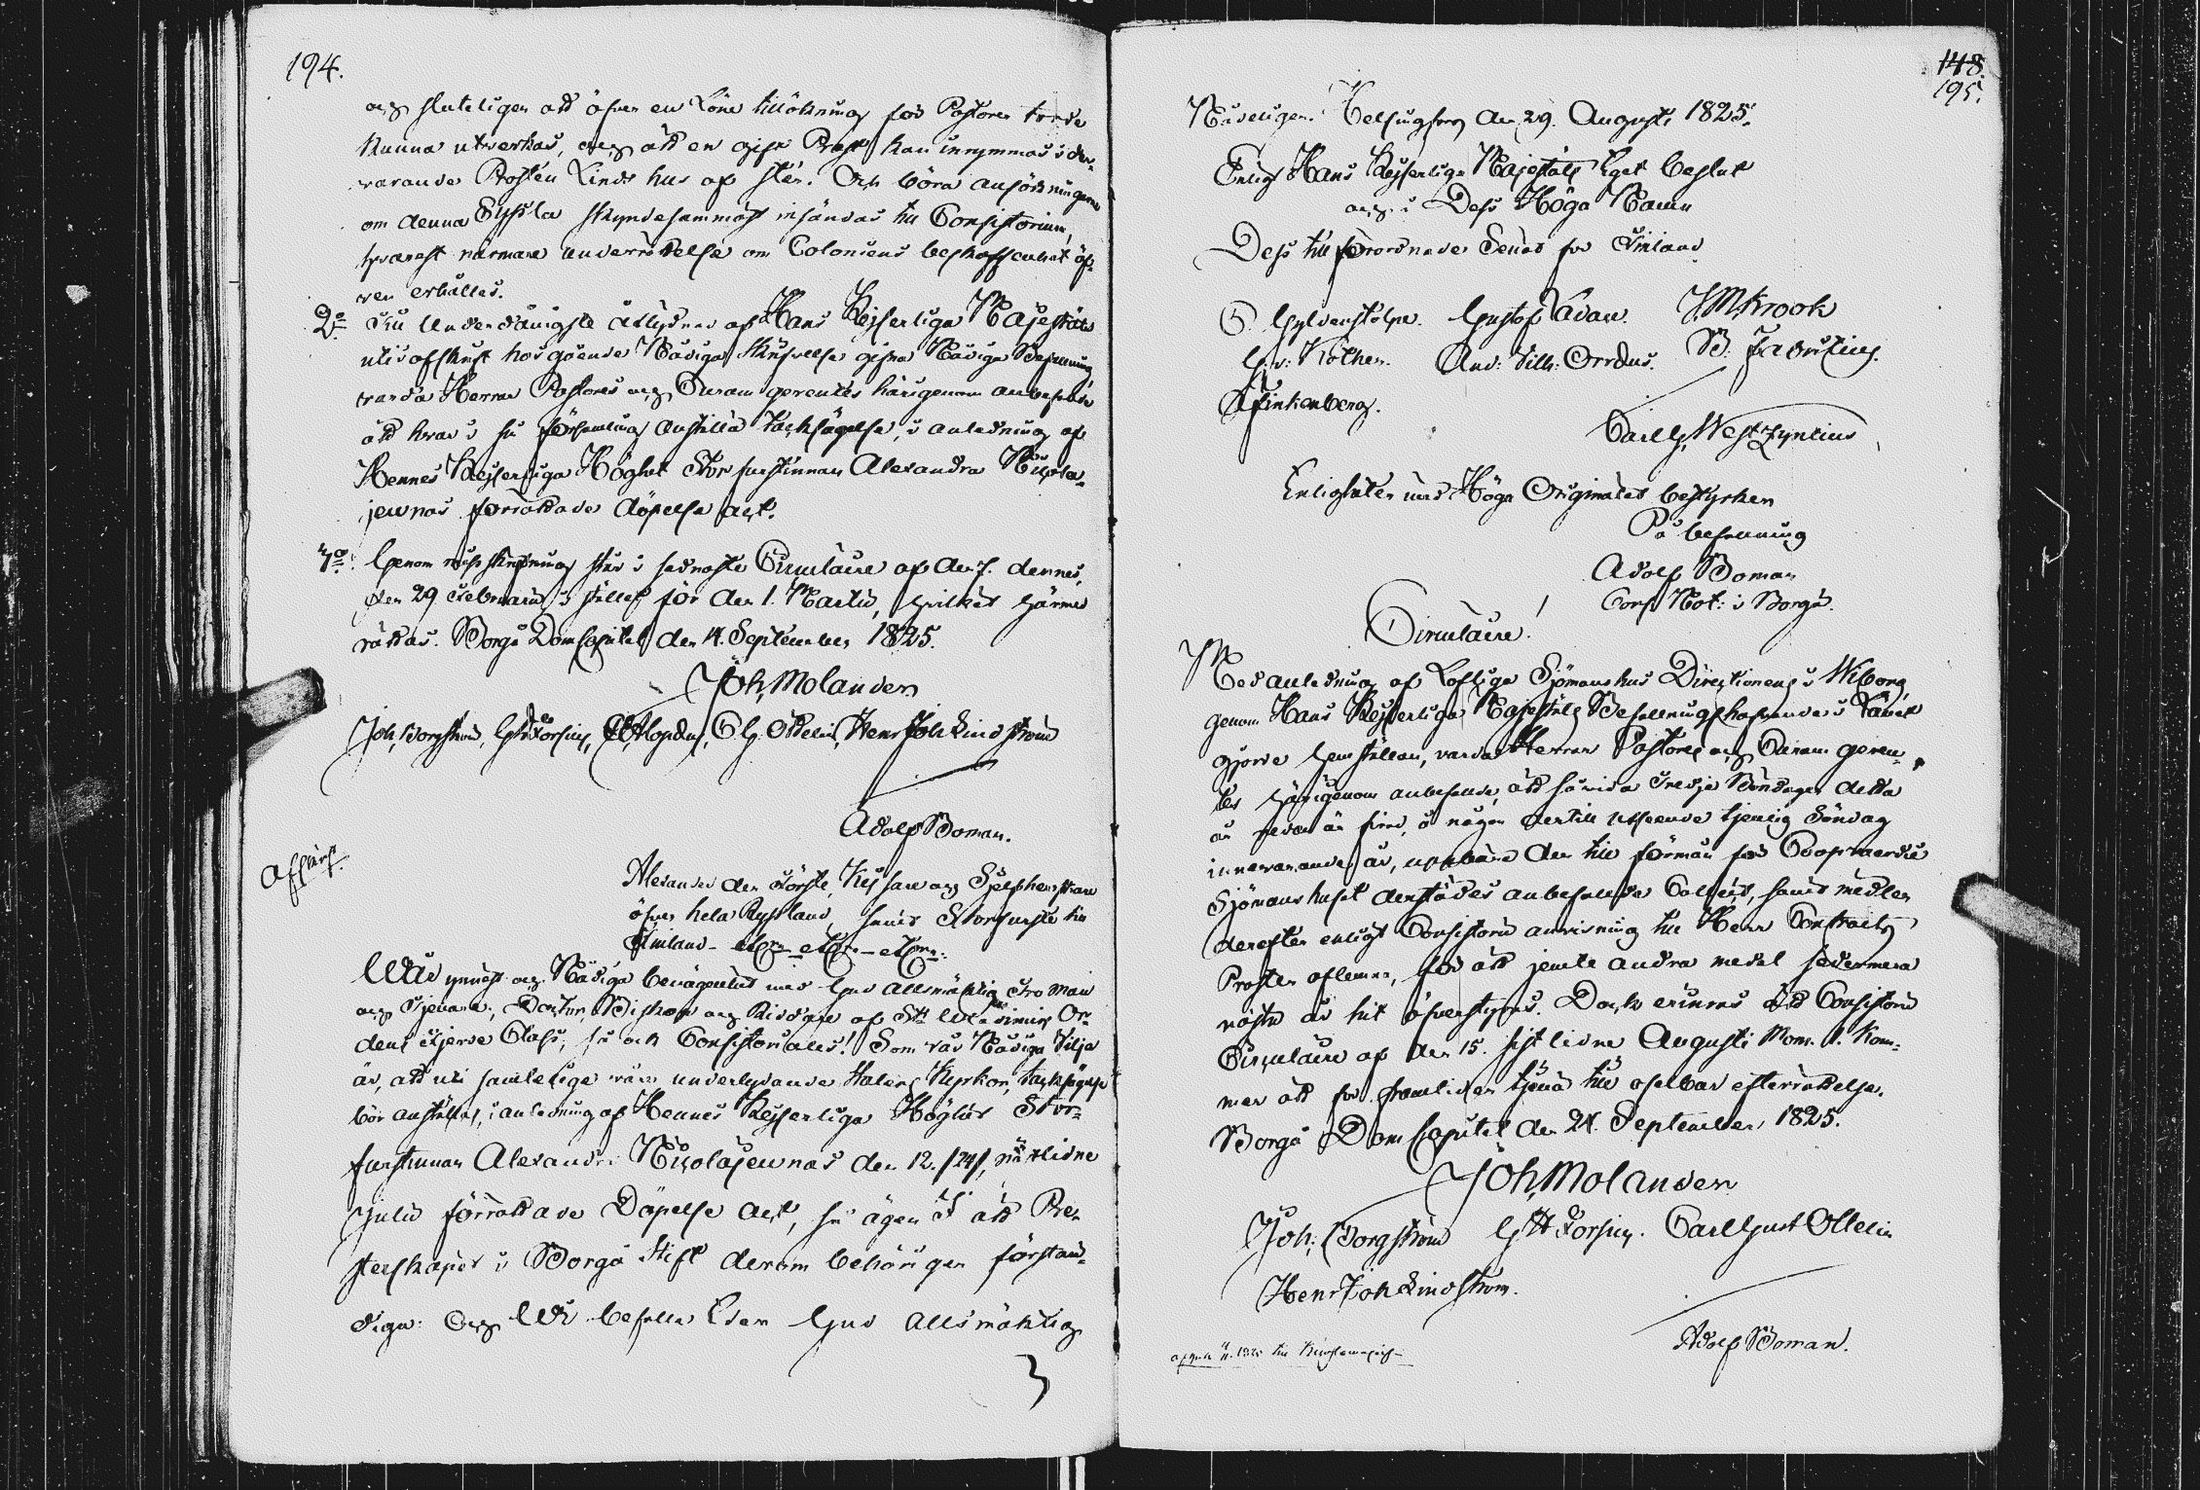 194.
och sluteligen att öfven en Löne tillökning för Pastoren torde
kunna utverkas, och att en gift Prest kan inrymmas i der
varande Prosten Linds hus af sten. Och böra ansökningar
om denna Syssla skyndesammast insändas till Consistorium,
hvarest närmare underrättelse om Coloniens beskaffenhet öf-
ven erhålles.
2o Till Underdånigste åtlydnad af Hans Kejserliga Majestäts
uti afskrift hosgående Nådiga Skrifvelse gifna Nådiga Befallning
varda Herrar Pastores och Sacrorum gerentes härigenom anbefalde
att hvar i sin församling anställa tacksägelse, i anledning af
Hennes Kejserliga Höghet Stor furstinnan Alexandra Nicola-
jewnas förrättade döpelse act.
Genom misskrifning står i sednaste Circulaire af den 7. dennes,
den 29 Februarii i stället för den 1. Martii, hvilket härmed
rättas. Borgå DomCapitel den 14. September 1825.
Joh, Molander
Joh, Borgström, G. H. Forsius, C. G. Ottelin, Henr Joh Lindström
Adolf Boman.
Afskrift.
Alexander den Förste, Kejsare och Sjelfherrskare
öfver hela Ryssland, samt Storfurste till
Finland - etc. - etc. - etc.
Wår ynnest och Nådiga benägenhet med Gud Allsmäktig Tro Man
och Tjenare, Doctor, Biskop och Riddare af St. Wladimirs Or-
dens tjerde Class, så ock Consistoriales! Som vår Nådiga Vilja
är, att uti samtelige våra underlydande Staters Kyrkor, tacksägelse
bör anställas, i anledning af Hennes Kejserliga Höghet Stor-
furstinnan Alexandra Nicolajewnas den 12. /24/, nästlidne
Julii förrättade Döpelse Act, så ägen I att Pre-
sterskapet i Borgå Stift derom behörigen förstän-
diga. Och Wi befalle Eder Gud Allsmäktig
148.
195.
Nådeligen. Helsingfors den 29. Augusti 1825.
Enligt Hans Kejserliga Majestäts Eget beslut
och i Dess Höga Namn
Dess tillförordnade Senat för Finland.
G. Gyldenstolpe. Gustaf Ladau. J. M. Krook
G. v: Kothen. And: Vilh: Orraeus. B. Favorinus.
Finkenberg.
Carl G. West Zynthius
Enligheten med Höga Originalet bestyrker
På befallning
Adolf Boman
Cons Not: i Borgå.
Circulaire!
Med anledning af Loflige Sjömanshus Directionens i Wiborg,
genom Hans Kejserliga Majestäts Befallningshafvande i Länet
gjorde hemställan, varda Herrar Pastores och Sacrorum geren-
tes härigenom anbefalde, att såvida tredje Böndagen detta
år redan är förbi, å någon dertill utseende tjenlig Söndag
innevarande år, uppbära den till förmån för Coopvaerdie
Sjömanshuset derstädes anbefallde Collect, samt medlen
derefter enligt Consistorii anvisning till Herr Contracts
Prosten aflemna, för att jemte andra medel sedermera
nästa år hit öfverstyras. Dock erinras att Consistorii
Circulaire af den 15. sistlidne Augusti Mom. 1. kom-
mer att för framtiden tjena till ofelbar efterrättelse.
Borgå DomCapitel den 21. September, 1825.
Joh, Molander
Joh: Borgström G H Forsius. Carl Gust Ottelin
Henr Joh Lindström.
Adolf Boman.